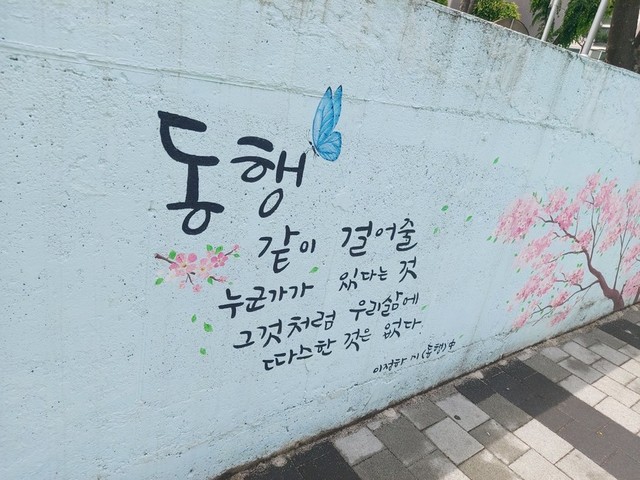 동행
같이 걸어줄
누군가가 있다는 것
그것처럼 우리삶에
따스한 것은 없다.
이정하 시 (동행) 中